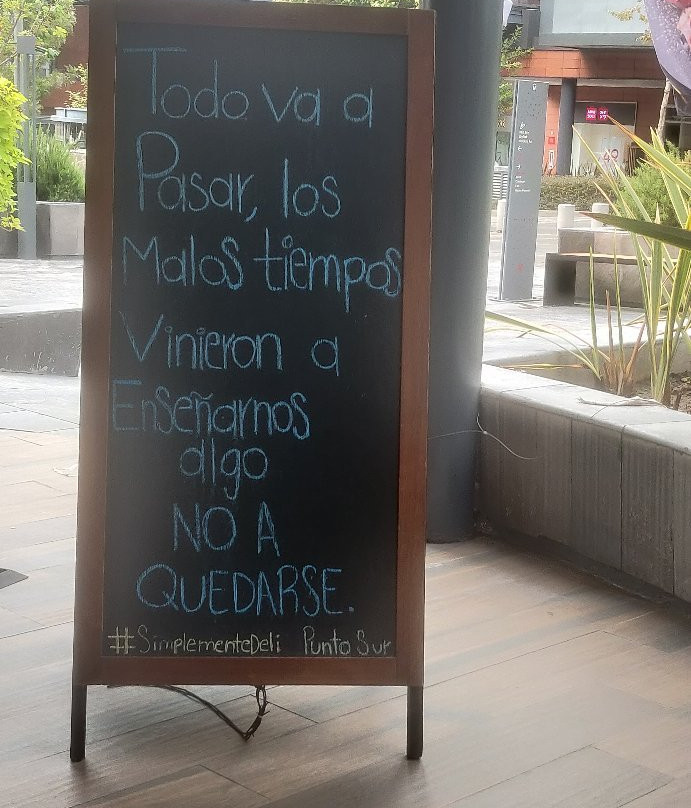 Todo va a
Pasar, los
Malos tiempos
Vinieron a
Enseñarnos
algo
NO A
QUEDARSE.
#SimplementeDeli Punto Sur